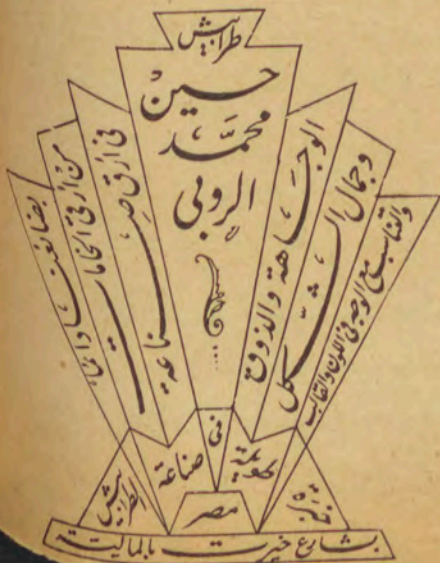 طرابيش
حسين
محمد
الروبي
الوجاهة والذوق
وجمال الشكل
والتناسب مع الوجه في اللون والقالب
في أرق صناعة
من أرقى الخامات
بضائعنا
في صناعة
مصر
الطرابيش
بشارع خيرت بالمالية